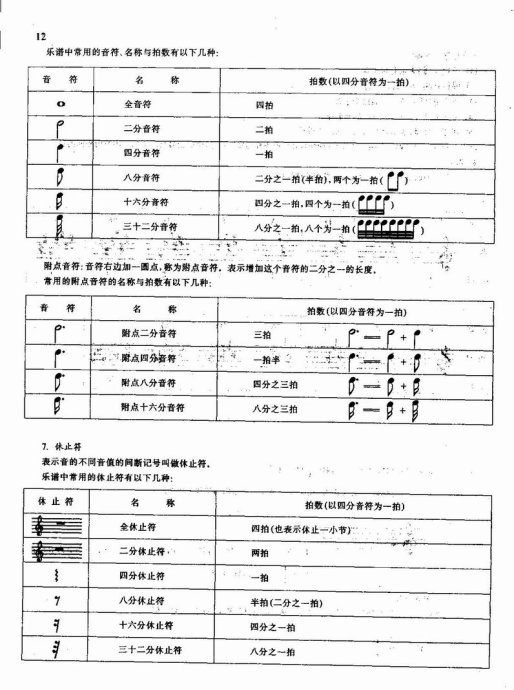 12
乐谱中常用的音符、名称与拍数有以下几种:
音 符 名 称 拍数(以四分音符为一拍)
全音符 四拍
二分音符 二拍
四分音符 一拍
八分音符 二分之一拍(半拍),两个为一拍( )
十六分音符 四分之一拍,四个为一拍( )
三十二分音符 八分之一拍,八个为一拍( )
附点音符:音符右边加一圆点,称为附点音符。表示增加这个音符的二分之一的长度。
常用的附点音符的名称与拍数有以下几种:
音 符 名 称 拍数(以四分音符为一拍)
附点二分音符 三拍 = +
附点四分音符 一拍半 = +
附点八分音符 四分之三拍 = +
附点十六分音符 八分之三拍 = +
7. 休止符
表示音的不同音值的间断记号叫做休止符。
乐谱中常用的休止符有以下几种:
休 止 符 名 称 拍数(以四分音符为一拍)
全休止符 四拍(也表示休止一小节)
二分休止符 两拍
四分休止符 一拍
八分休止符 半拍(二分之一拍)
十六分休止符 四分之一拍
三十二分休止符 八分之一拍